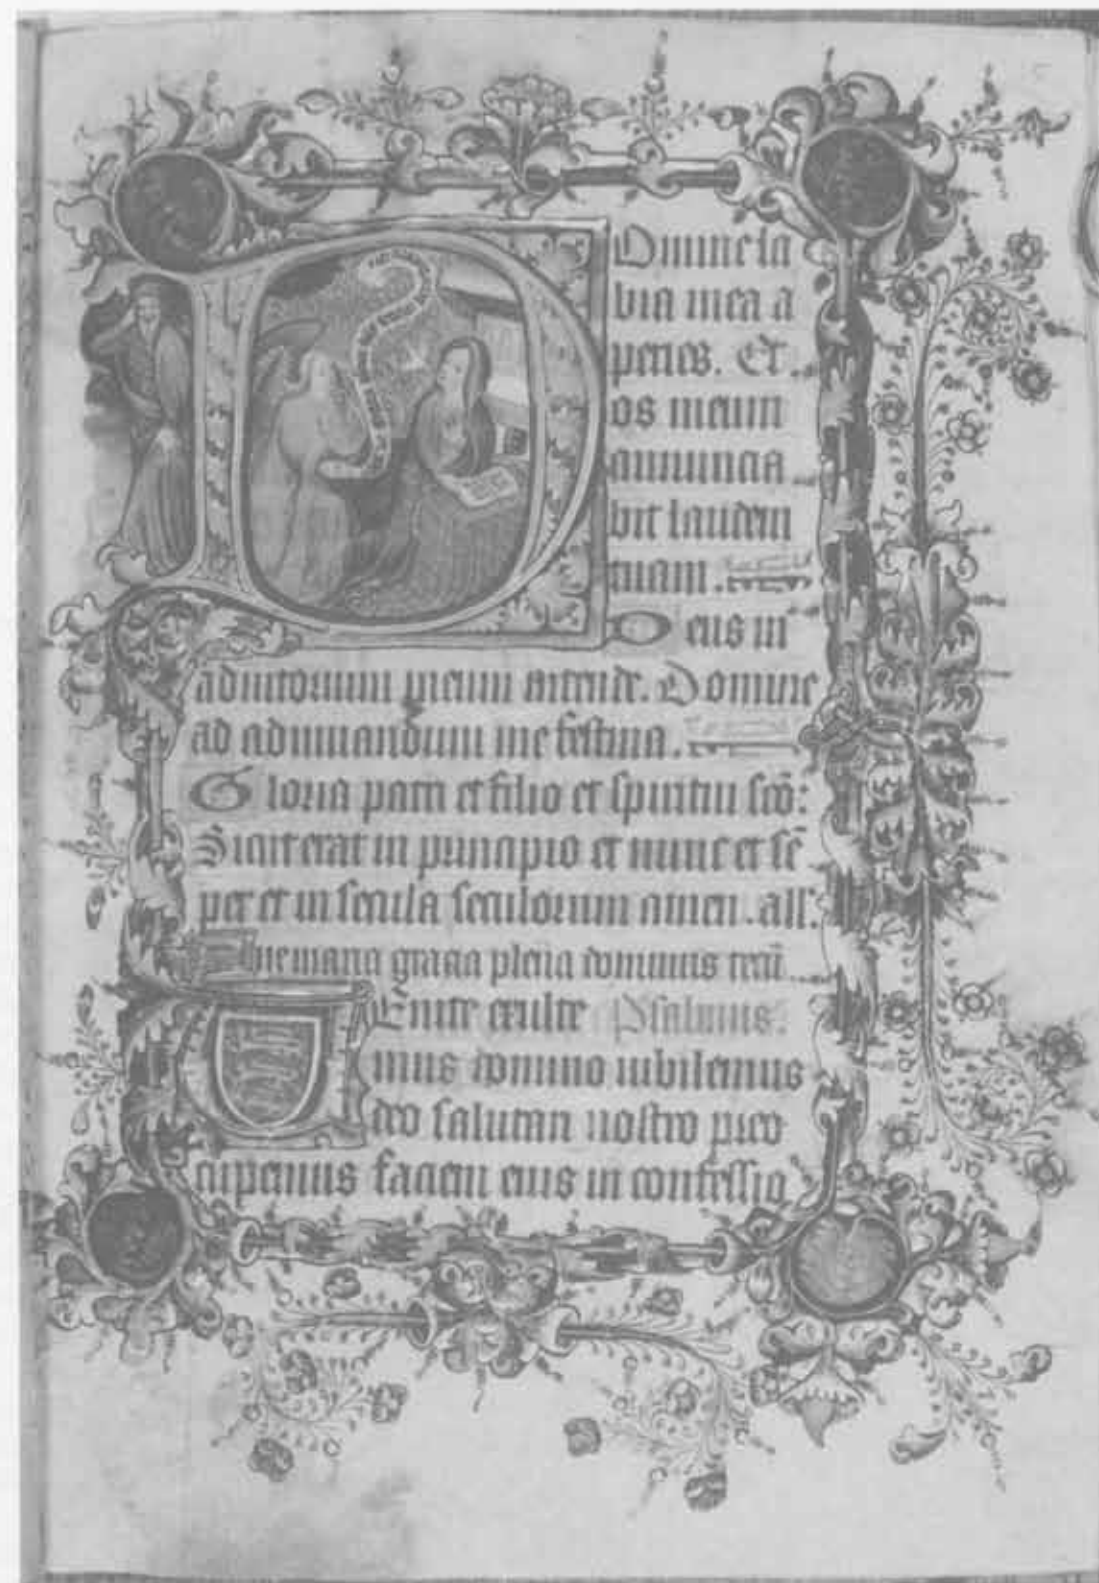 Omine la
bia mea a
peries. Et
os meum
annuncia
bit laudem
tuam.
Deus in
adiutorium meum intende. Domine
ad adiuuandum me festina.
Gloria patri et filio et spiritui sco:
Sicut erat in principio et nunc et sē
per et in secula seculorum amen. all:
Aue maria gracia plena dominus tecū
Enite exulte Psalmus.
mus domino iubilemus
deo salutari nostro preo
cupemus faciem eius in confessio